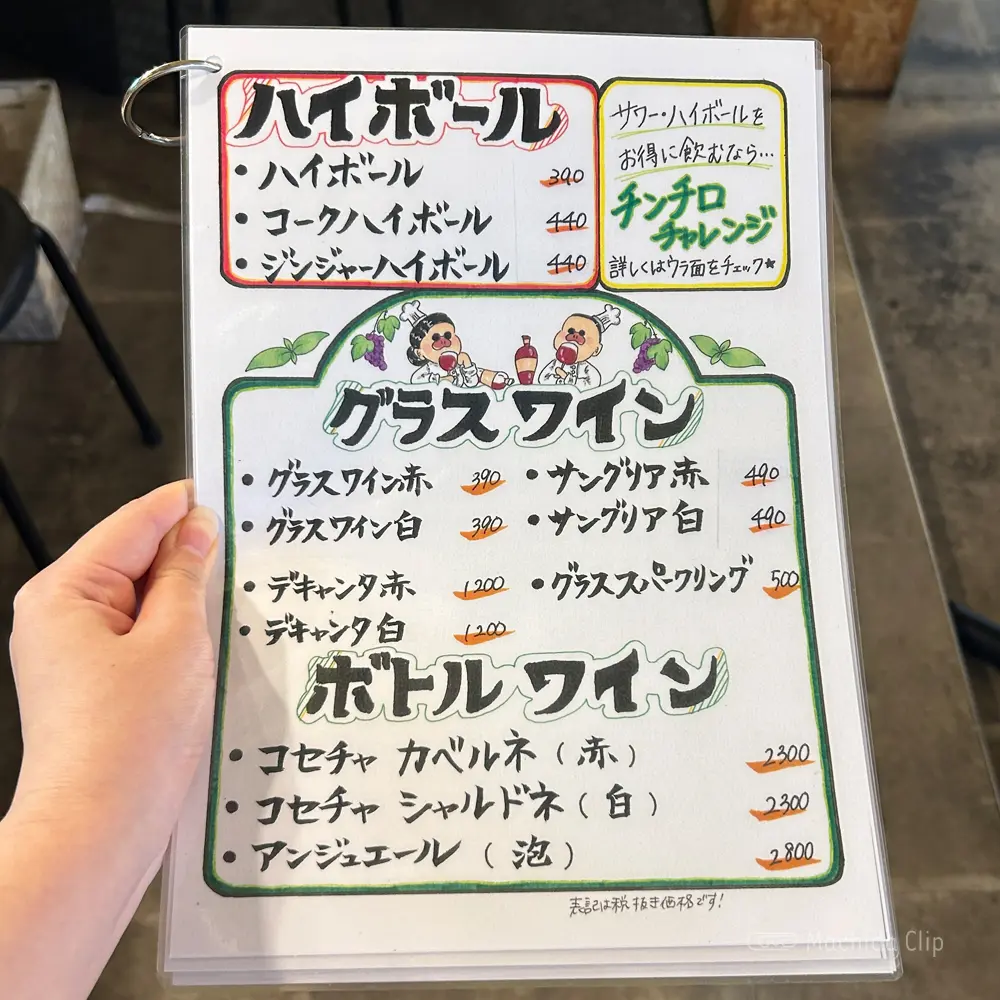 ハイボール
・ハイボール 390
・コークハイボール 440
・ジンジャーハイボール 440
サワー・ハイボールを
お得に飲むなら…
チンチロ
チャレンジ
詳しくはウラ面をチェック★
グラスワイン
・グラスワイン赤 390
・グラスワイン白 390
・デキャンタ赤 1200
・デキャンタ白 1200
・サングリア赤 490
・サングリア白 490
・グラススパークリング 500
ボトルワイン
・コセチャ カベルネ（赤） 2300
・コセチャ シャルドネ（白） 2300
・アンジュエール（泡） 2800
表記は税抜き価格です！
Machica Clip